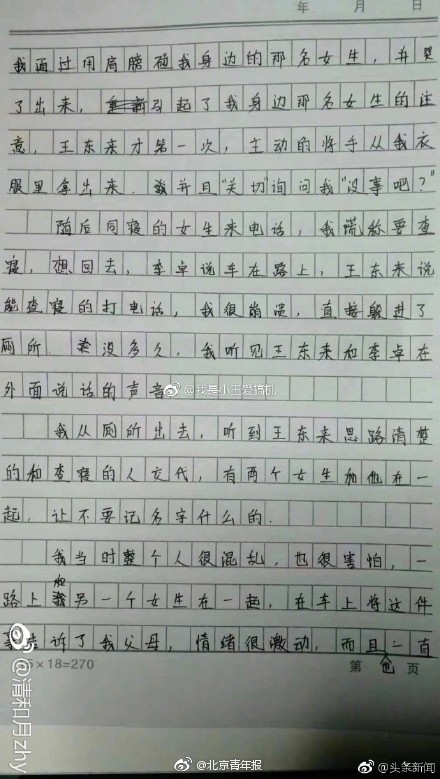 年 月 日
我通过用肩膀碰我身边的那名女生，并哭
了出来，引起了我身边那名女生的注
意，王东来才第一次，主动的将手从我衣
服里拿出来，并且“关切”询问我“没事吧？”
随后同寝的女生来电话，我谎称要查
寝，想回去，李卓说车在路上，王东来说
能查寝的打电话，我很崩溃，直接躲进了
厕所. 没多久，我听见王东来和李卓在
外面说话的声音
@我是小王爱搞机
我从厕所出去，听到王东来思路清楚
的和查寝的人交代，有两个女生和他在一
起，让不要记名字什么的.
我当时整个人很混乱，也很害怕，一
路上和另一个女生在一起，在车上将这件
事告诉了我父母，情绪很激动，而且他一直
5×18=270
第 页
@清和月zhy
@北京青年报
@头条新闻